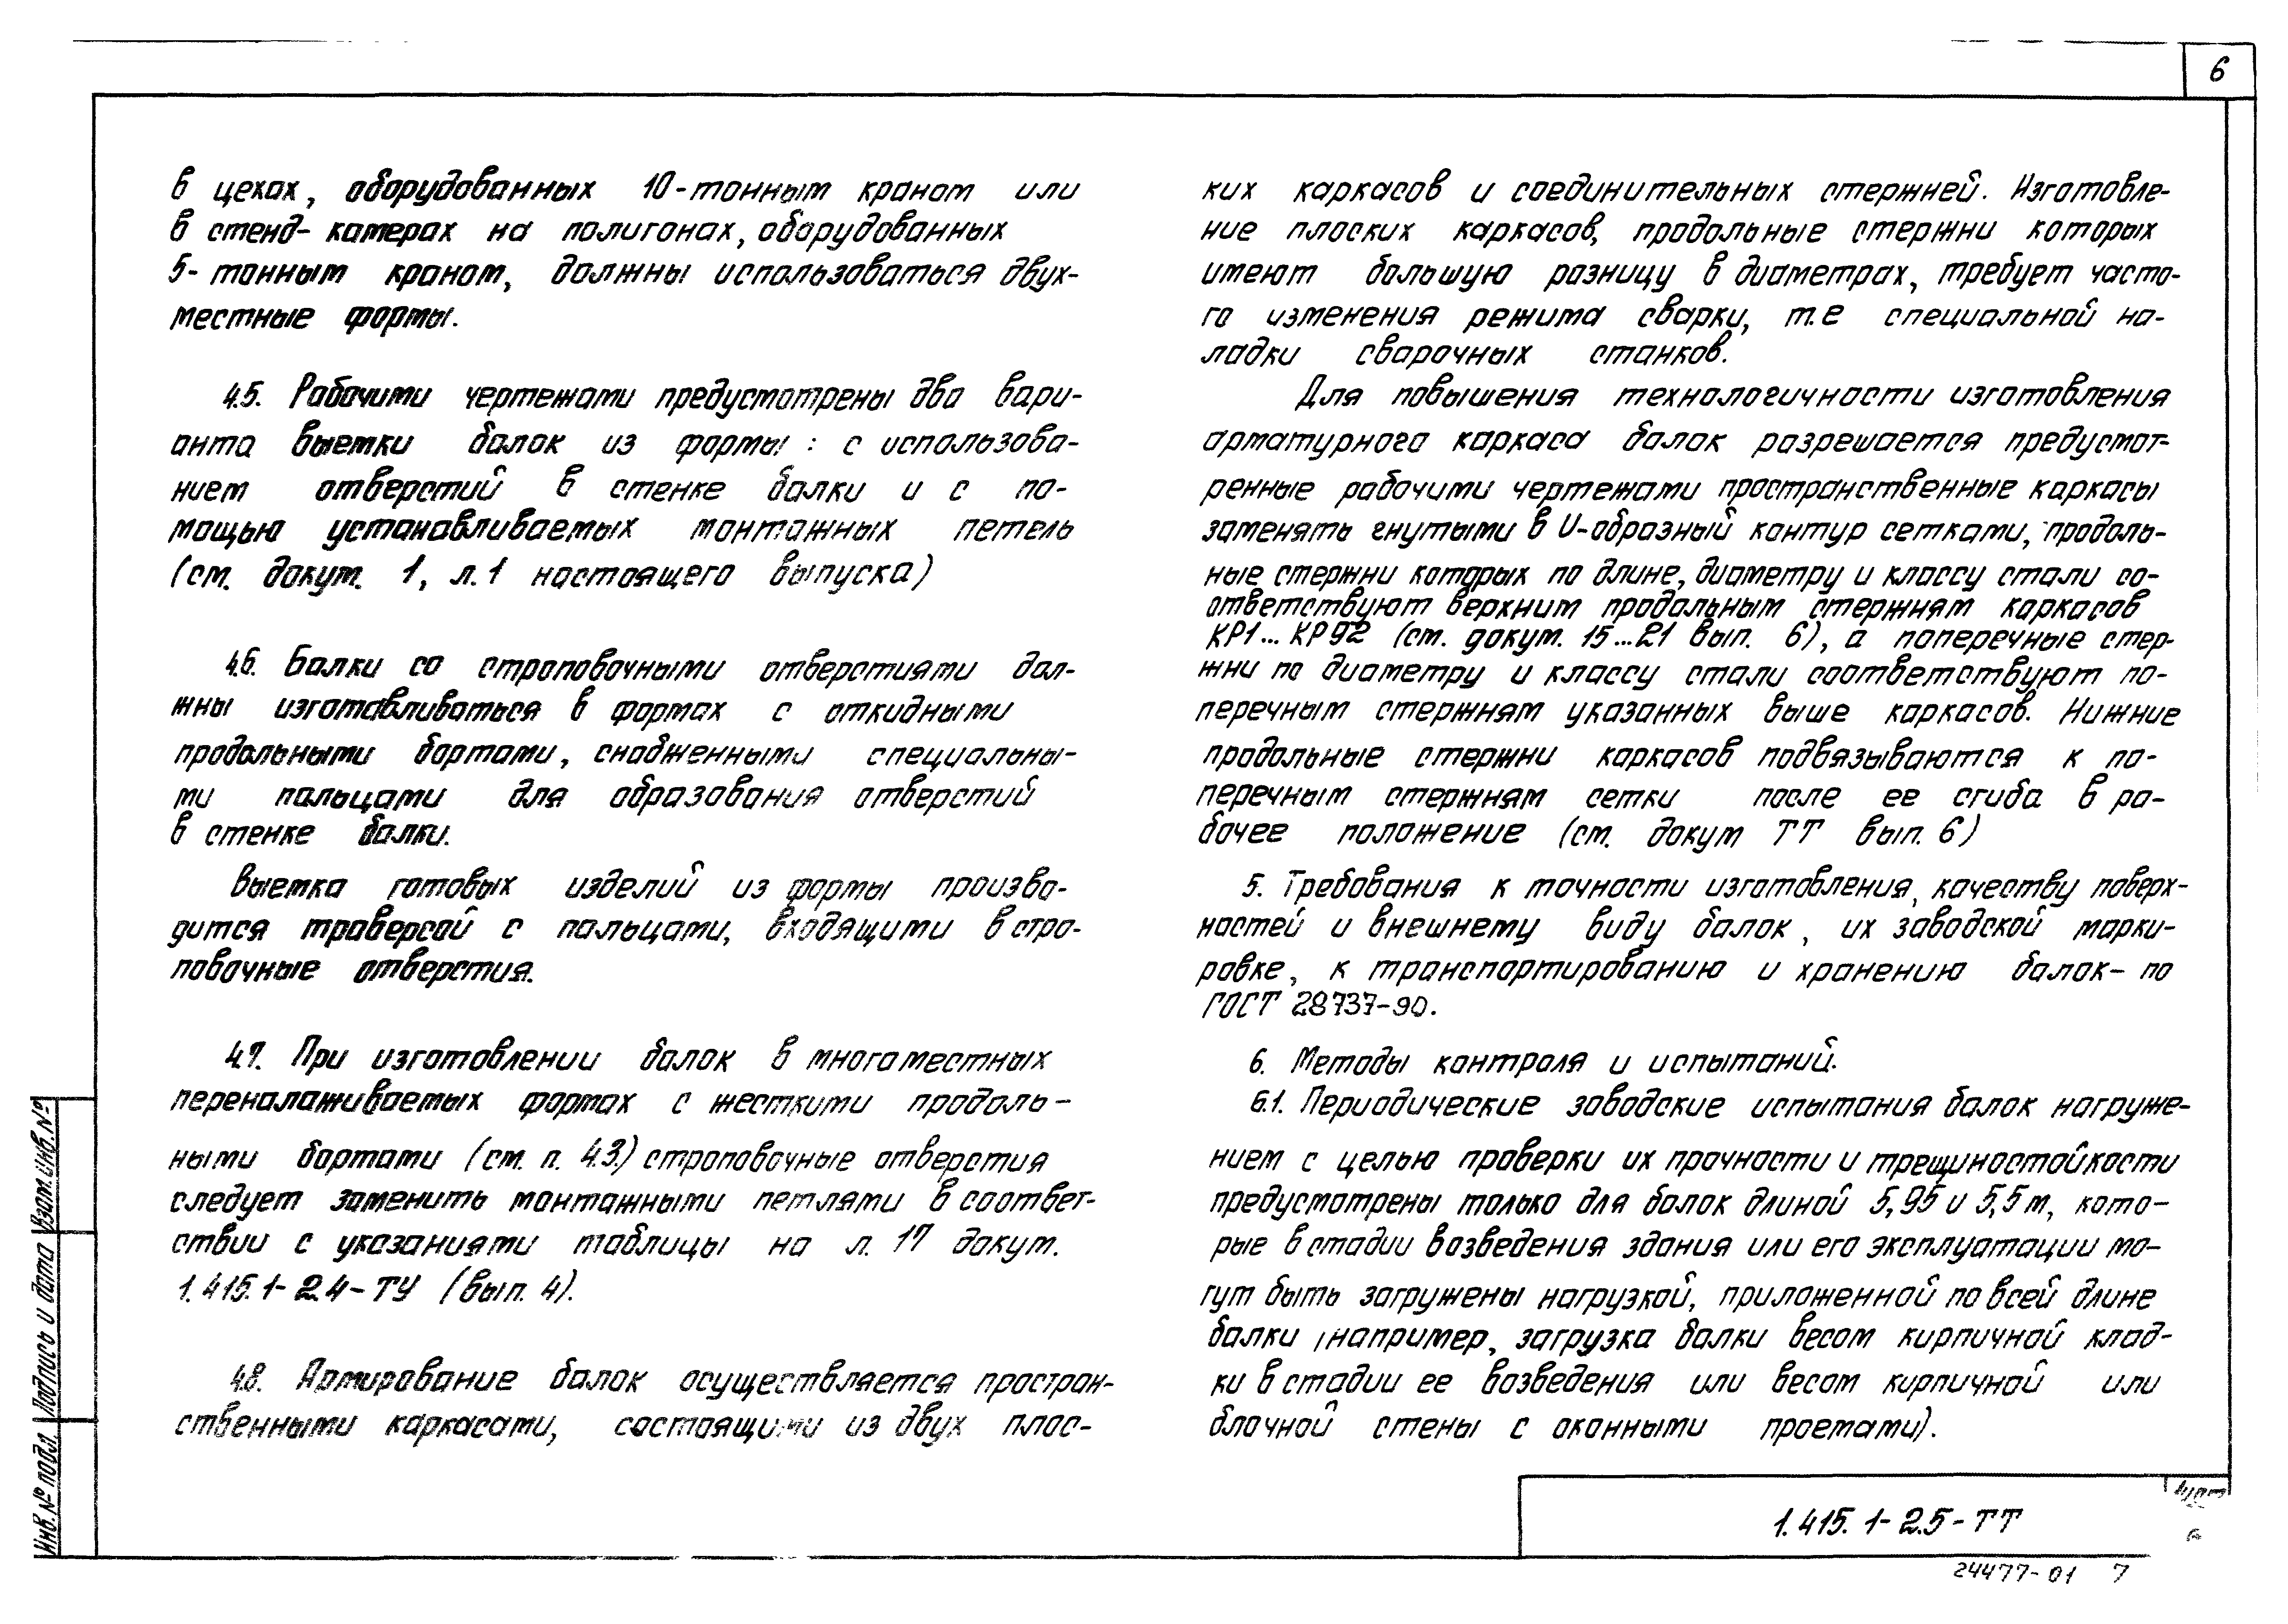 6
в цехах, оборудованных 10-тонным краном или
в стенд-камерах на полигонах, оборудованных
5-тонным краном, должны использоваться двух-
местные формы.
4.5. Рабочими чертежами предусмотрены два вари-
анта выемки балок из формы: с использова-
нием отверстий в стенке балки и с по-
мощью устанавливаемых монтажных петель
(см. докум. 1, л.1 настоящего выпуска)
4.6. Балки со строповочными отверстиями дол-
жны изготавливаться в формах с откидными
продольными бортами, снабженными специальны-
ми пальцами для образования отверстий
в стенке балки.
Выемка готовых изделий из формы произво-
дится траверсой с пальцами, входящими в стро-
повочные отверстия.
4.7. При изготовлении балок в многоместных
переналаживаемых формах с жесткими продоль-
ными бортами (см. п. 4.3.) строповочные отверстия
следует заменить монтажными петлями в соответ-
ствии с указаниями таблицы на л. 17 докум.
1.415.1-2.4-ТУ (вып. 4).
4.8. Армирование балок осуществляется простран-
ственными каркасами, состоящими из двух плос-
ких каркасов и соединительных стержней. Изготовле-
ние плоских каркасов, продольные стержни которых
имеют большую разницу в диаметрах, требует часто-
го изменения режима сварки, т.е специальной на-
ладки сварочных станков.
Для повышения технологичности изготовления
арматурного каркаса балок разрешается предусмот-
ренные рабочими чертежами пространственные каркасы
заменять гнутыми в U-образный контур сетками, продоль-
ные стержни которых по длине, диаметру и классу стали со-
ответствуют верхним продольным стержням каркасов
КР1...КР92 (см. докум. 15...21 вып. 6), а поперечные стер-
жни по диаметру и классу стали соответствуют по-
перечным стержням указанных выше каркасов. Нижние
продольные стержни каркасов подвязываются к по-
перечным стержням сетки после ее сгиба в ра-
бочее положение (см. докум ТТ вып. 6)
5. Требования к точности изготовления, качеству поверх-
ностей и внешнему виду балок, их заводской марки-
ровке, к транспортированию и хранению балок- по
ГОСТ 28737-90.
6. Методы контроля и испытаний.
6.1. Периодические заводские испытания балок нагруже-
нием с целью проверки их прочности и трещиностойкости
предусмотрены только для балок длиной 5,95 и 5,5 м, кото-
рые в стадии возведения здания или его эксплуатации мо-
гут быть загружены нагрузкой, приложенной по всей длине
балки (например, загрузка балки весом кирпичной клад-
ки в стадии ее возведения или весом кирпичной или
блочной стены с оконными проемами).
Инв. № подл. Подпись и дата Взам. инв. №
1.415.1-2.5-ТТ
Лист
6
24477-01 7